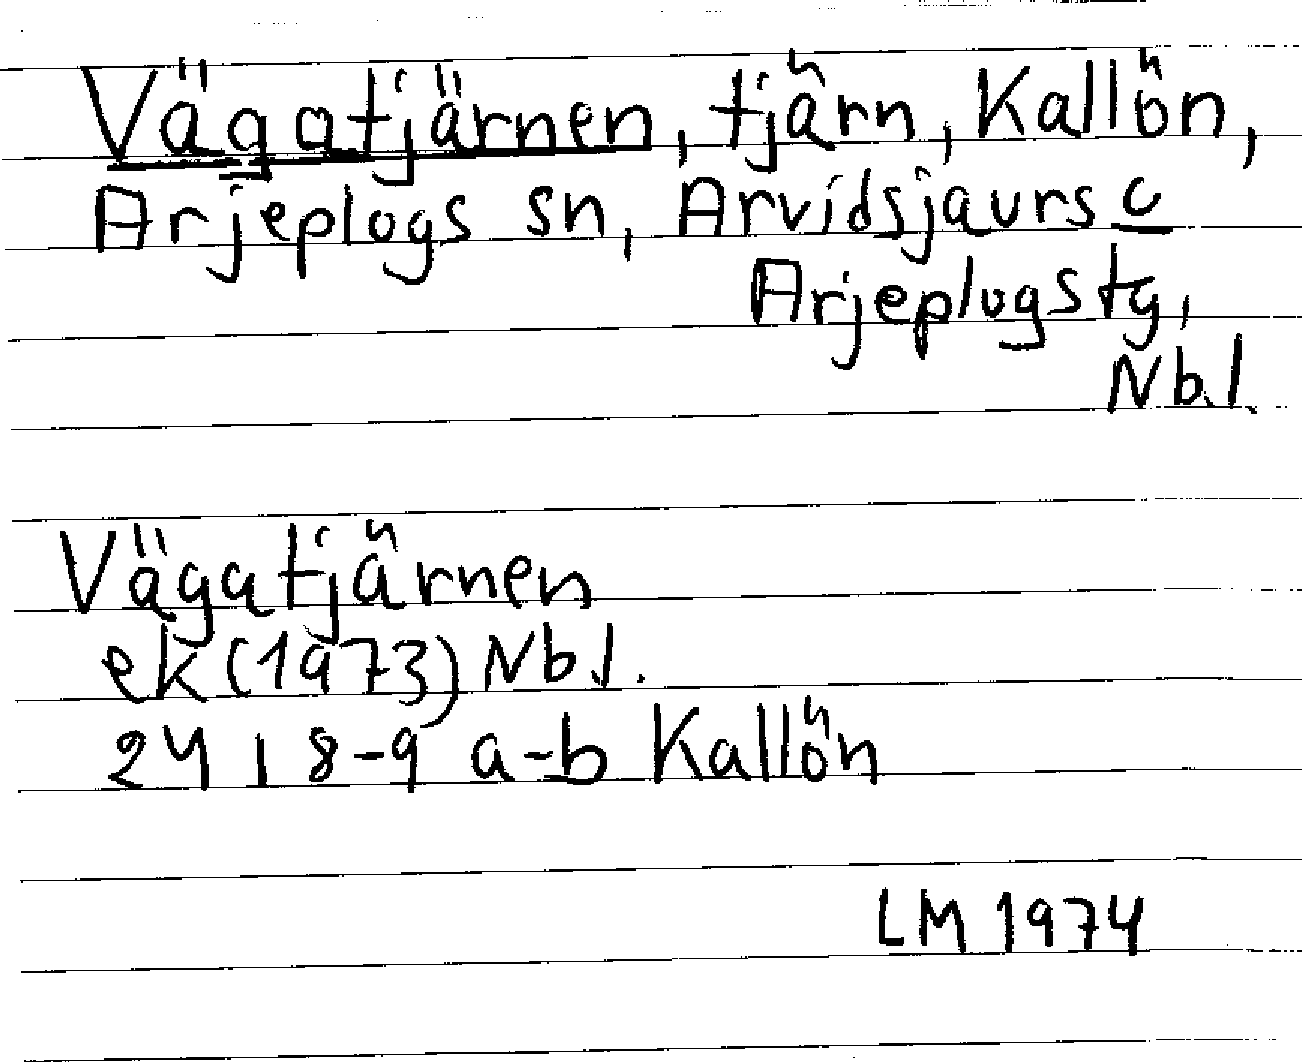 Vägatjärnen, tjärn, Kallön,
Arjeplogs sn, Arvidsjaurs o
Arjeplogs tg,
Nb.l.
Vägatjärnen
ek (1973) Nb l.
24 I 8-9 a-b Kallön
LM 1974